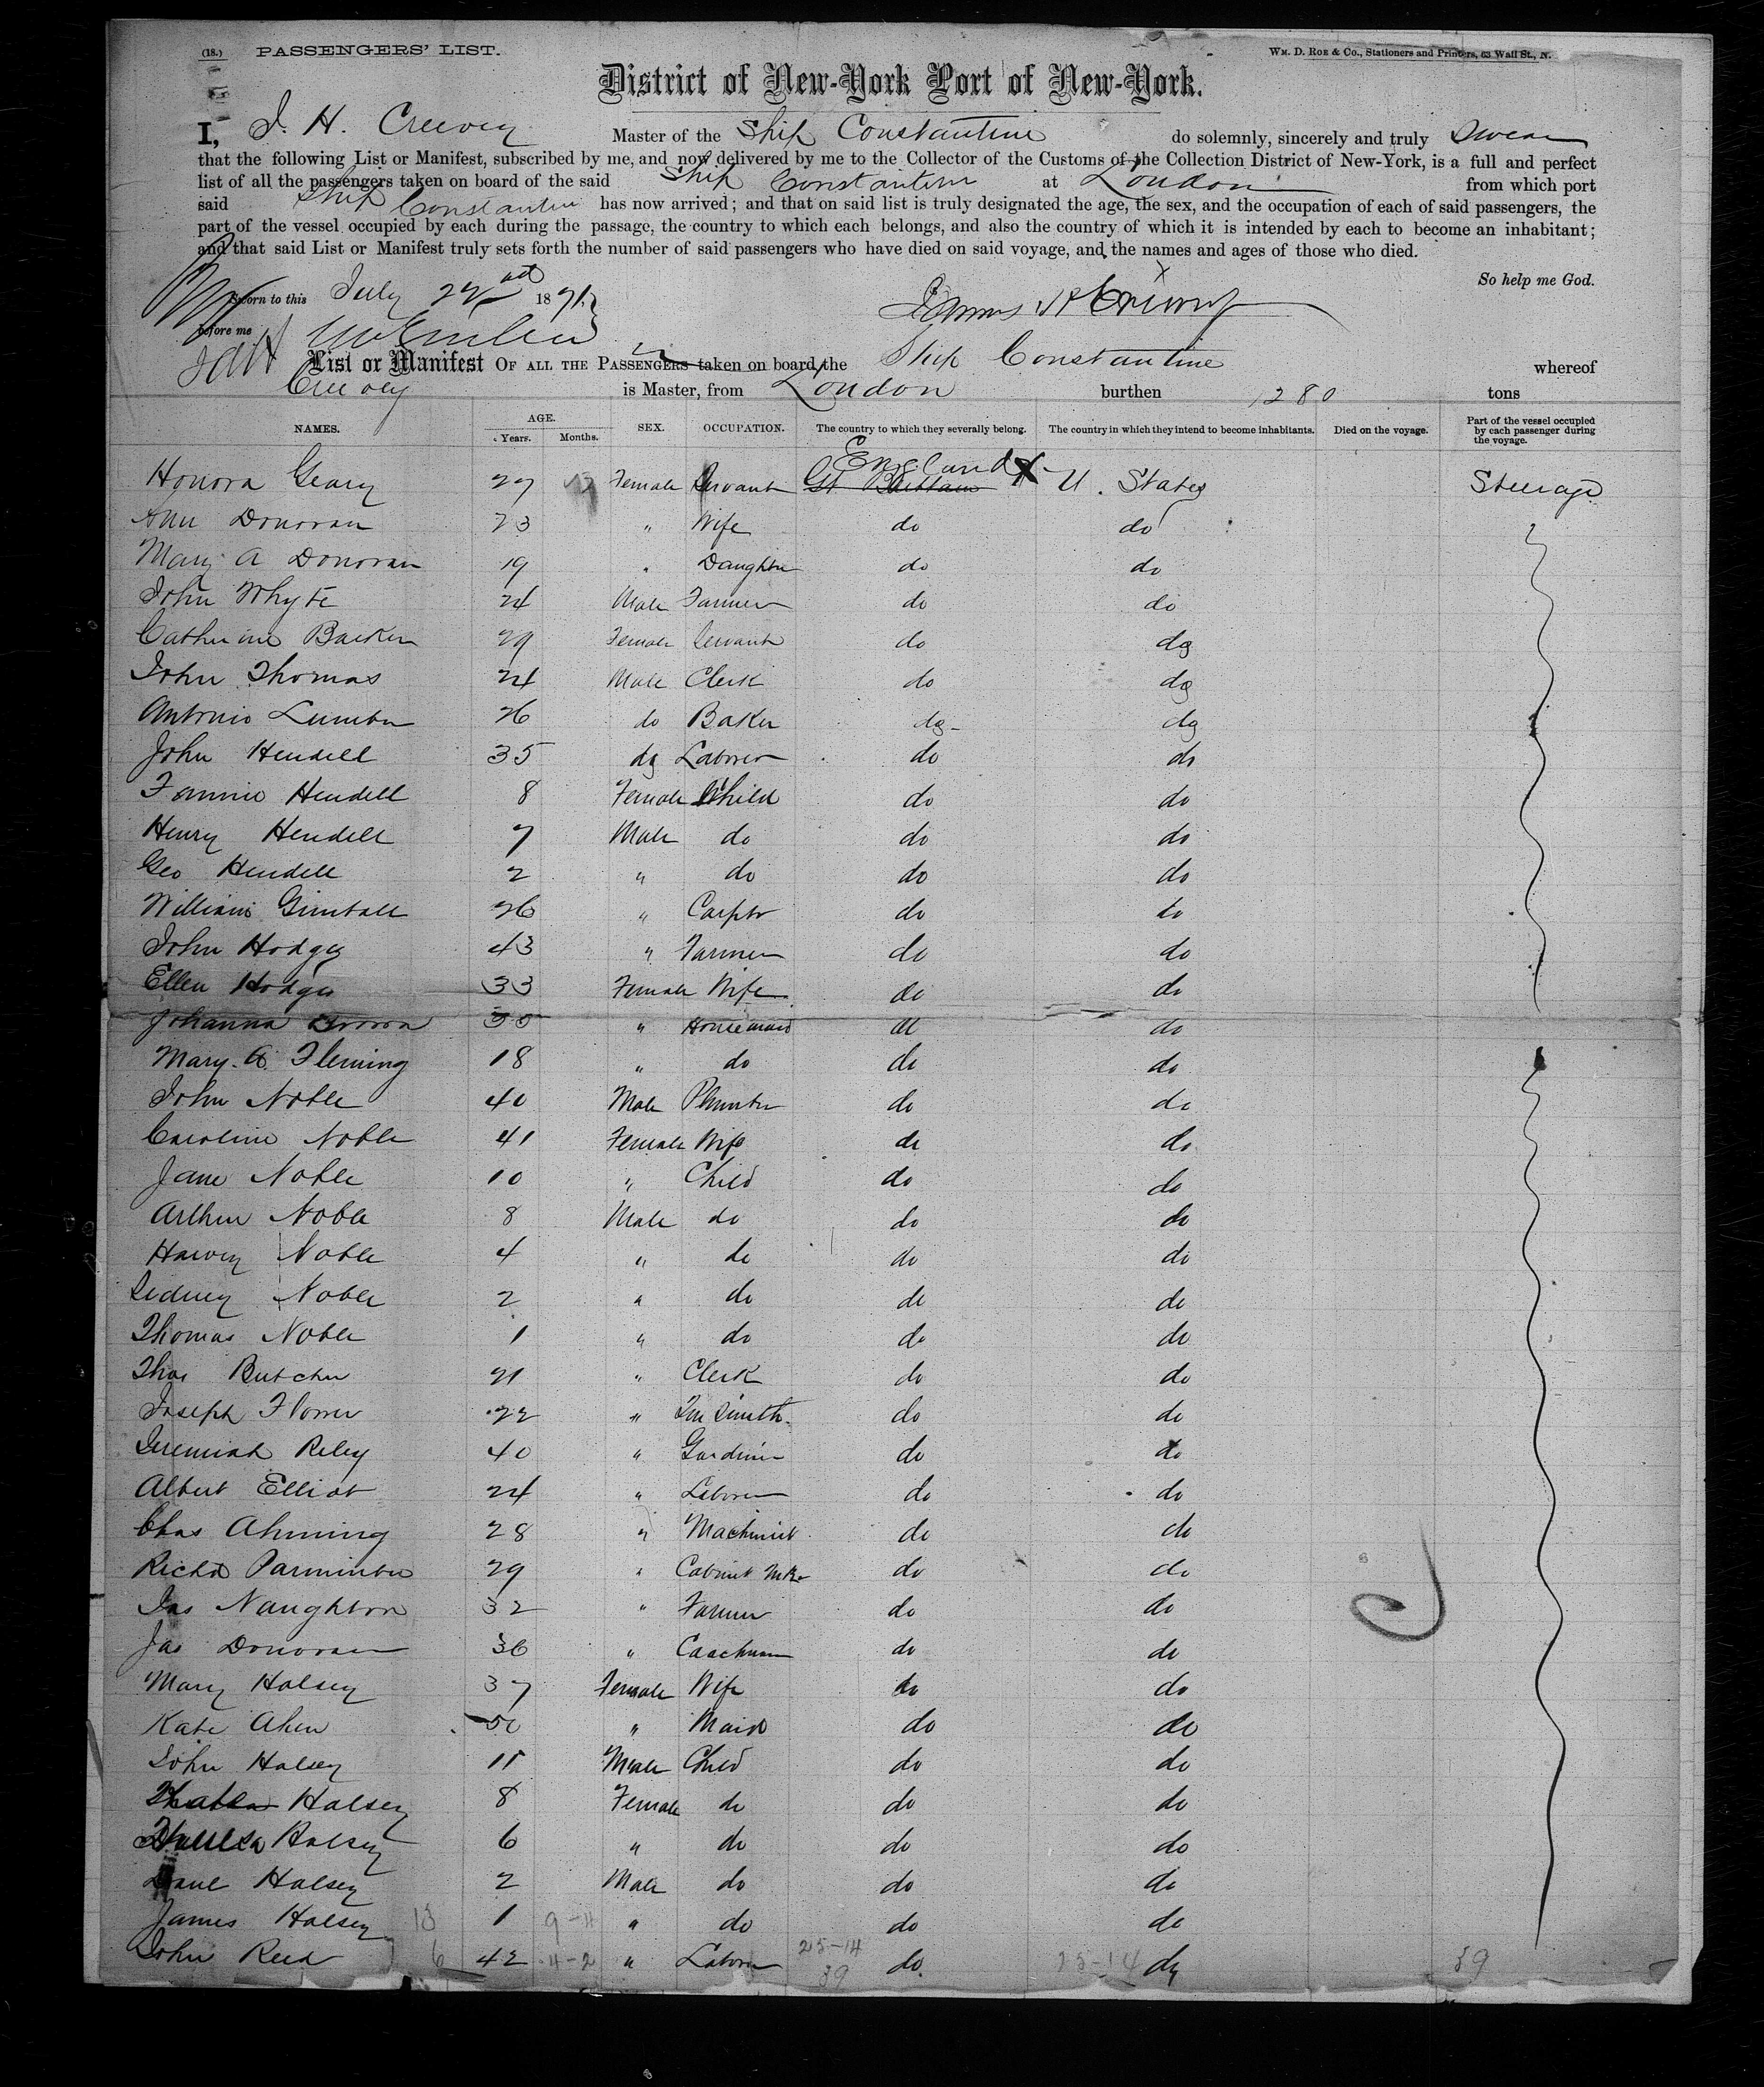 (18.) PASSENGERS' LIST. WM. D. ROE & CO., Stationers and Printers, 63 Wall St., N.
District of New-York Port of New-York.
I, J. H. Creevey Master of the Ship Constantine do solemnly, sincerely and truly Swear
that the following List or Manifest, subscribed by me, and now delivered by me to the Collector of the Customs of the Collection District of New-York, is a full and perfect
list of all the passengers taken on board of the said Ship Constantine at London from which port
said Ship Constantine has now arrived; and that on said list is truly designated the age, the sex, and the occupation of each of said passengers, the
part of the vessel occupied by each during the passage, the country to which each belongs, and also the country of which it is intended by each to become an inhabitant;
and that said List or Manifest truly sets forth the number of said passengers who have died on said voyage, and the names and ages of those who died.
So help me God.
Sworn to this July 22nd 1871
before me
List or Manifest OF ALL THE PASSENGERS taken on board the Ship Constantine whereof
J H Creevey is Master, from London burthen 1280 tons
NAMES. AGE. Years. Months. SEX. OCCUPATION. The country to which they severally belong. The country in which they intend to become inhabitants. Died on the voyage. Part of the vessel occupied by each passenger during the voyage.
England
Honora Geary 27 Female Servant Gt Brittain U. States Steerage
Ann Donovan 23 " Wife do do
Mary A Donovan 19 " Daughter do do
John Whyte 24 Male Farmer do do
Catherine Barker 29 Female Servant do do
John Thomas 24 Male Clerk do do
Antonio 26 do Baker do do
John Hendell 35 do Laborer do do
Fannie Hendell 8 Female Child do do
Henry Hendell 7 Male do do do
Geo Hendell 2 " do do do
William Gimball 26 " Carptr do do
John Hodges 43 " Farmer do do
Ellen Hodges 33 Female Wife do do
Johanna Brown 35 " Housemaid do do
Mary. A. Fleming 18 " do do do
John Noble 40 Male Plumber do do
Caroline Noble 41 Female Wife do do
Jane Noble 10 " Child do do
Arthur Noble 8 Male do do do
Harvey Noble 4 " do do do
Sidney Noble 2 " do do do
Thomas Noble 1 " do do do
Thos Butcher 21 " Clerk do do
Joseph Flower 22 " Tin Smith do do
Jeremiah Riley 40 " Gardiner do do
Albert Elliot 24 " Laborer do do
Chas Ahming 28 " Machinist do do
Richd Parminter 29 " Cabinet Mkr do do
Jas Naughton 32 " Farmer do do
Jas Donovan 36 " Coachman do do
Mary Halsey 37 Female Wife do do
Kate Ahern 50 " Maid do do
John Halsey 11 Male Child do do
Halsey 8 Female do do do
Halsey 6 " do do do
Danl Halsey 2 Male do do do
James Halsey 13 1 9-11 " do do do
John Reed 6 42 11-2 " Laborer 25-14 39 do 25-14 do 39